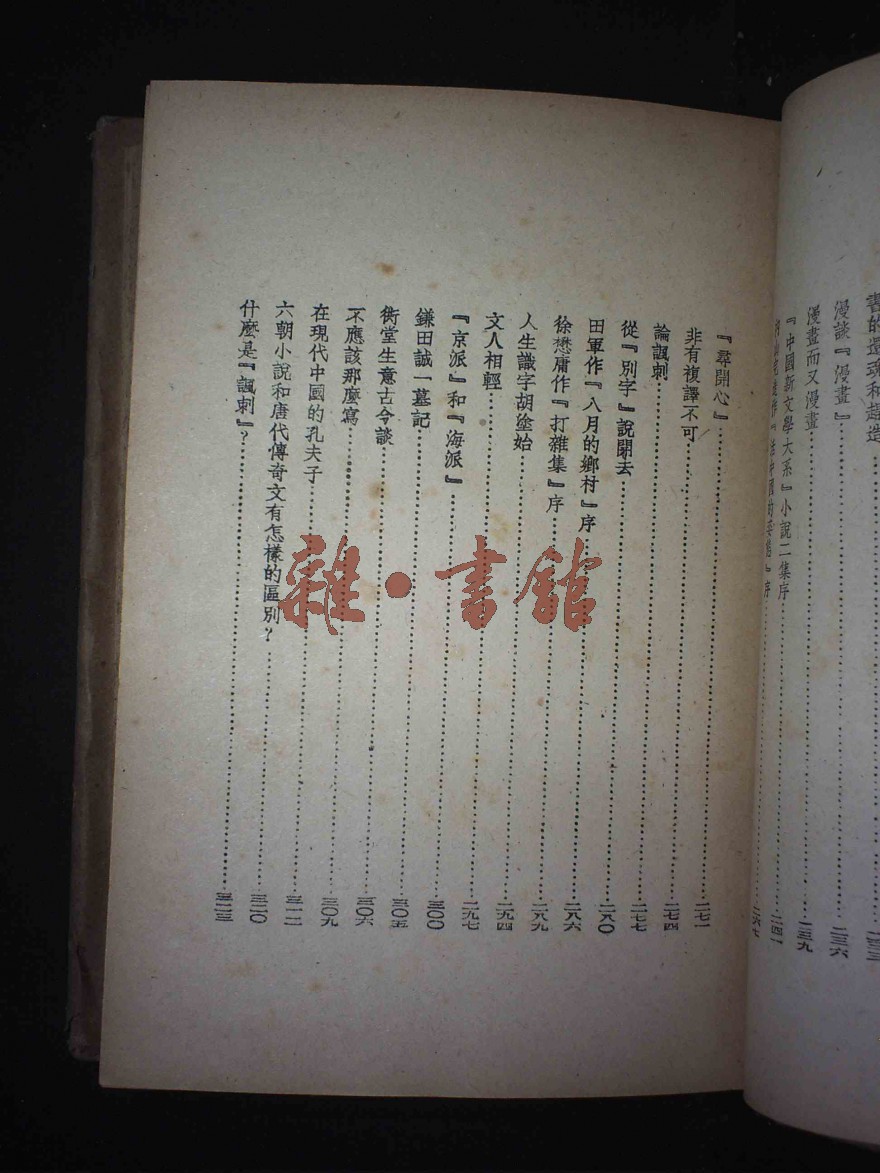 書的還魂和趕造
漫談『漫畫』……二三六
漫畫而又漫畫……二三九
『中國新文學大系』小說二集序……二四一
作『活中國的姿態』序……二六七
『尋開心』……二七一
非有複譯不可……二七四
論諷刺……二七七
從『別字』說開去……二八〇
田軍作『八月的鄉村』序……二八六
徐懋庸作『打雜集』序……二八九
人生識字胡塗始……二九四
文人相輕……二九七
『京派』和『海派』……三〇〇
鎌田誠一墓記……三〇五
衖堂生意古今談……三〇六
不應該那麼寫……三〇九
在現代中國的孔夫子……三一二
六朝小說和唐代傳奇文有怎樣的區別?……三二〇
什麼是『諷刺』?……三二三
雜·書館